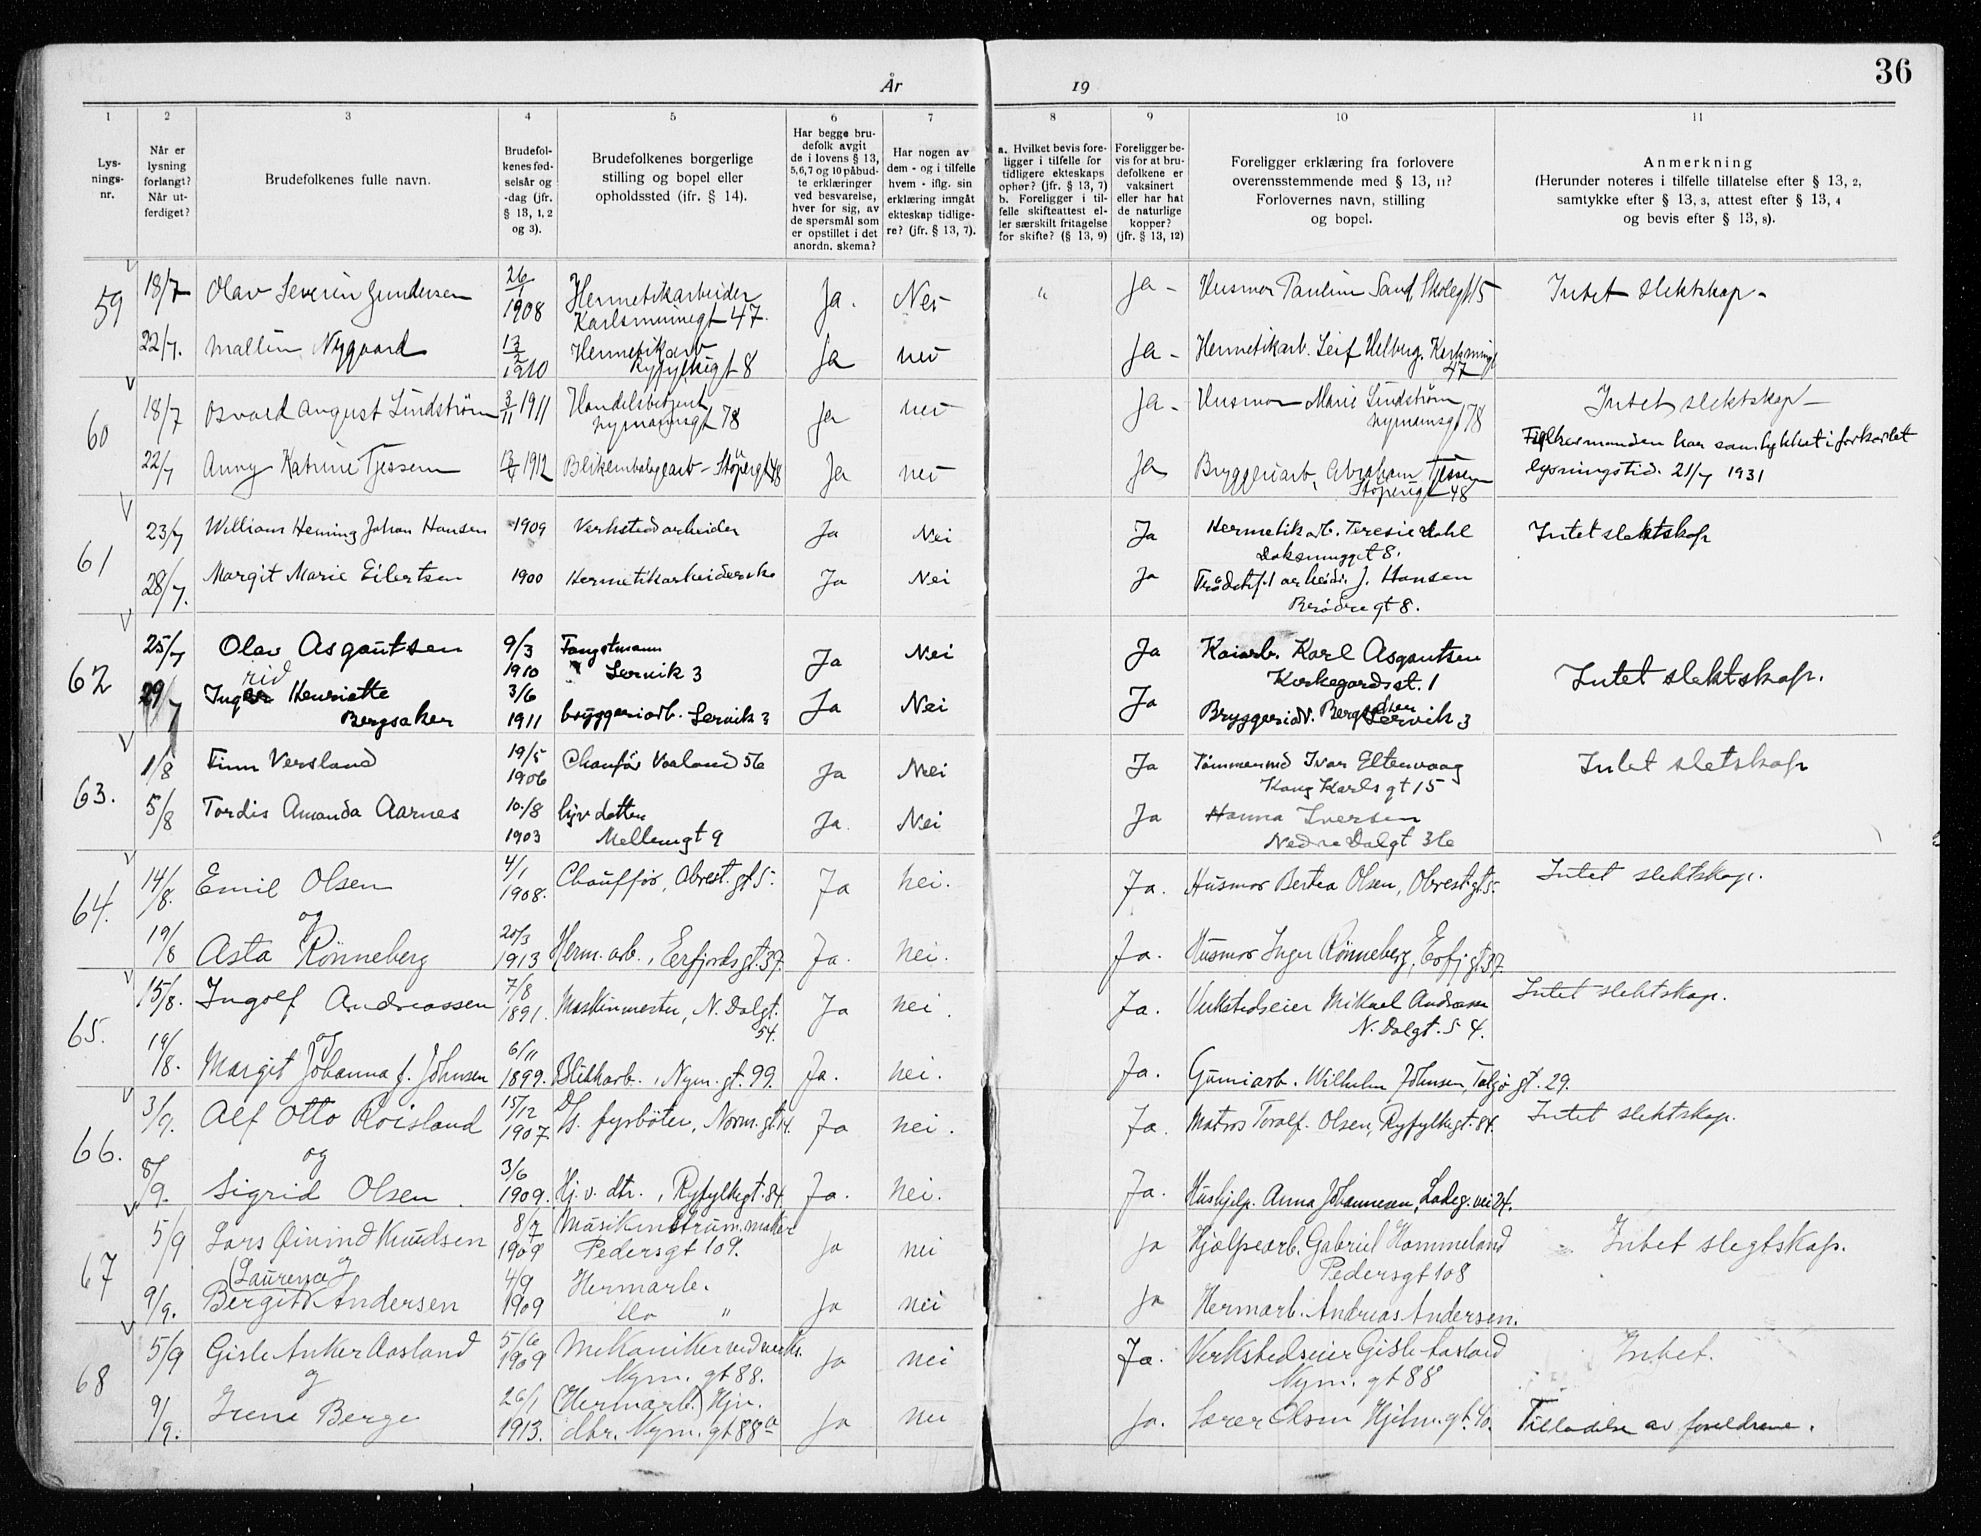 36
År 19
1 2 3 4 5 6 7 8 9 10 11
Lys-
nings-
nr.
Når er
lysning
forlangt?
Når ut-
ferdiget?
Brudefolkenes fulle navn.
Brudefol-
kenes fød-
selsår og
-dag (jfr.
§ 13, 1, 2
og 3).
Brudefolkenes borgerlige
stilling og bopel eller
opholdssted (ifr. § 14).
Har begge bru-
defolk avgit
de i lovens § 13,
5,6,7 og 10 påbud-
te erklæringer
ved besvarelse,
hver for sig, av
de spørsmål som
er opstillet i det
anordn. skema?
Har nogen av
dem - og i tilfelle
hvem - iflg. sin
erklæring inngåt
ekteskap tidlige-
re? (jfr. § 13, 7).
a. Hvilket bevis fore-
ligger i tilfelle for
tidligere ekteskaps
ophør? (jfr. § 13, 7)
b. Foreligger i til-
felle skifteattest el-
ler særskilt fritagelse
for skifte? (§ 13, 9)
Foreligger be-
vis for at bru-
defolkene er
vaksinert
eller har hat
de naturlige
kopper?
(jfr. § 13, 12)
Foreligger erklæring fra forlovere
overensstemmende med § 13, 11?
Forlovernes navn, stilling
og bopel.
Anmerkning
(Herunder noteres i tilfelle tillatelse efter § 13, 2,
samtykke efter § 13, 3, attest efter § 13, 4
og bevis efter § 13, 8).
59 18/7 Olav Severin Gundersen 26/1 1908 Hermetikarbeider Ja. Nei " Ja - Husmor Pauline Sand Skolegt 15 Intet slektskap -
Karlsminnegt 47.
22/7. Mallin Nygaard 13/2 1910 Hermetikarb Ja nei Ja - Hermetikarb. Leif Helberg. Karlsmingt
Ryfylkegt 8 47
60 18/7 Osvald August Lindstrøm 3/11 1911 Handelsbetjent Ja nei Ja - Husmor Marie Lindstrøm Intet slektskap -
nymannsgt 78 nymannsgt 78
Fylkesmanden har samtykket i forkortet
22/7 Anny Katrine Tjessem 1912 Blikemballagearb - Støperigt 48 Ja nei Ja Bryggeriarb, Abraham Tjessem lysningstid. 21/7 1931
Støperigt 48
61 23/7 William Heming Johan Hansen 1909 Verkstedarbeider Ja Nei Ja Hermetikarb. Teresie Dahl Intet slektskap
gt 8.
28/7. Margit Marie Eilertsen 1900 Hermetikarbeiderske Ja Nei Ja arbeider J. Hansen
Brødregt 8.
62 25/7 Olav Asgautsen 9/3 1910 Fangstmann Ja Nei Ja Kaiarb. Karl Asgautsen Intet slektskap.
Lervik 3 Kirkegardsst. 1
rid
29/7 Inger Henriette 3/6 1911 bryggeriarb. Lervik 3 Ja Nei Ja Bryggeriarb. Lervik 3
Bergsaker
63. 1/8 Finn Versland 19/5 1906 Chaufør Vaaland 56 Ja Nei Ja Tømmermd Ivar Eltervaag Intet sletskap
Kong Karls gt 15
5/8 Tordis Amanda Aarnes 10/8 1903 hjv datter Ja. Nei Ja Hanna Iversen
Mellemgt 9 Nedre Dalgt 36
64. 14/8. Emil Olsen 4/1 1908. Chauffør, Obrest. gt 5. Ja nei. Ja. Husmor Bertea Olsen, Obrest. gt. 5. Intet slektskap.
og
19/8 Asta Rønneberg 20/3 1913 Herm. arb., Erfjords gt. 37. Ja. nei. Ja. Husmor Inger Rønneberg, Erfj. gt. 37.
65. 15/8. Ingolf Andreassen 7/8 1891. Maskinmester, N. Dalgt. 54. Ja nei. Ja. Verkstedseier Mikael Andreassen Intet slektskap.
N. Dalgt. 54.
og
19/8. Margit Johanna f. Johnsen 6/11 1899. Blikkarb., Nym. gt. 99. Ja. nei. Ja. Gumiarb. Wilhelm Johnsen, Talgø gt. 29.
66. 3/9. Alf Otto Roisland 15/12 1907. D/S. fyrbøter, Norm. gt. 14. Ja nei. Ja. Matros Toralf Olsen, Ryfylkegt. 84. Intet slektskap.
og
8/9. Sigrid Olsen 3/6 1909. Hj. v. dtr., Ryfylkegt. 84. Ja. nei. Ja. Hushjelp. Anna Johannesen, Ladeg. vei 24.
67 5/9 Lars Øivind Knudsen 8/7 1909 Musikinstrum. maker Ja nei Ja Hjælpearb. Gabriel Hommeland Intet slegtskap.
Pedersgt 109. Pedersgt 108
og
(Laurena
9/9. Bergit Andersen 4/9 1909 Hermarb. Ja nei Ja Hermarb. Andreas Andersen.
do "
68 5/9 Gisle Anker Aasland 5/6 1909 Mekaniker ved verks. Ja nei Ja. Verkstedseier Gisle Aasland Intet.
Nym. gt 88. Nym. gt 88
og
9/9. Irene Berge 26/1 1913. (Hermarb.) Hjv. Ja nei Ja. Lærer Olsen Hjelm. gt. 40. Tilladelse av foreldrene.
dtr. Nym. gt 88a